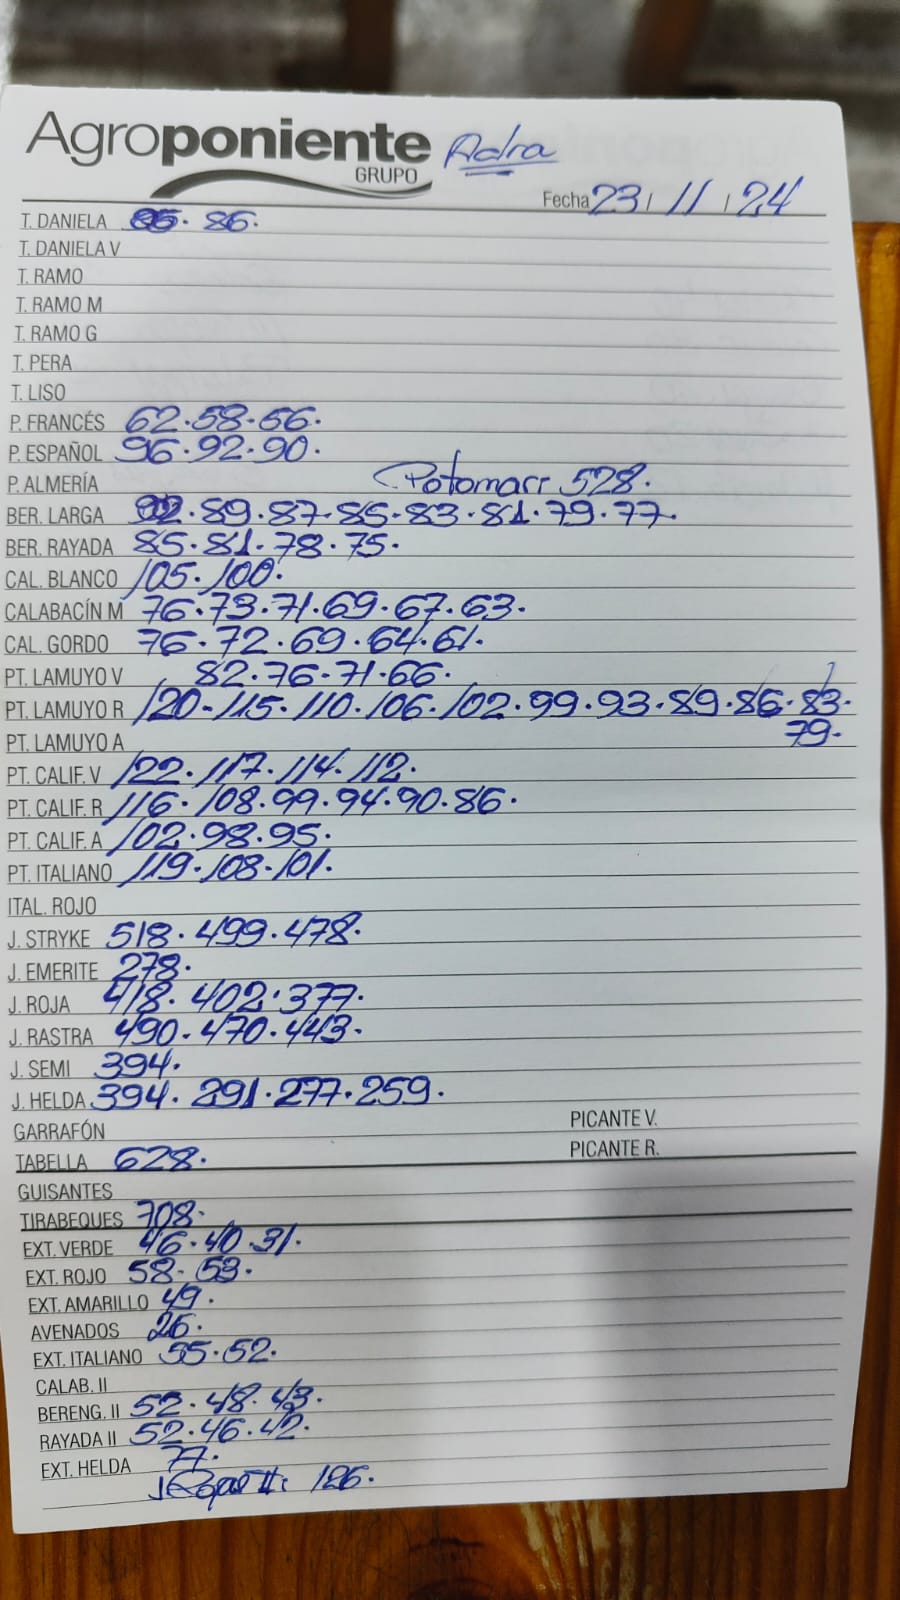 Agroponiente Adra
GRUPO
Fecha 23 / 11 / 24
T. DANIELA 86.
T. DANIELA V
T. RAMO
T. RAMO M
T. RAMO G
T. PERA
T. LISO
P. FRANCÉS 62.58.56.
P. ESPAÑOL 96.92.90.
P. ALMERÍA 528.
BER. LARGA 92.89.87.85.83.81.79.77.
BER. RAYADA 85.81.78.75.
CAL. BLANCO 105.100.
CALABACÍN M 76.73.71.69.67.63.
CAL. GORDO 76.72.69.64.61.
PT. LAMUYO V 82.76.71.66.
PT. LAMUYO R 120.115.110.106.102.99.93.89.86.83.
PT. LAMUYO A 79.
PT. CALIF. V 122.117.114.112.
PT. CALIF. R 116.108.99.94.90.86.
PT. CALIF. A 102.98.95.
PT. ITALIANO 119.108.101.
ITAL. ROJO
J. STRYKE 518.499.478.
J. EMERITE 278.
J. ROJA 418.402.377.
J. RASTRA 490.470.443.
J. SEMI 394.
J. HELDA 394.291.277.259.
GARRAFÓN PICANTE V.
TABELLA 628. PICANTE R.
GUISANTES
TIRABEQUES 708.
EXT. VERDE 46.40.31.
EXT. ROJO 58.53.
EXT. AMARILLO 49.
AVENADOS 26.
EXT. ITALIANO 55.52.
CALAB. II
BERENG. II 52.48.43.
RAYADA II 52.46.42.
EXT. HELDA 77.
126.